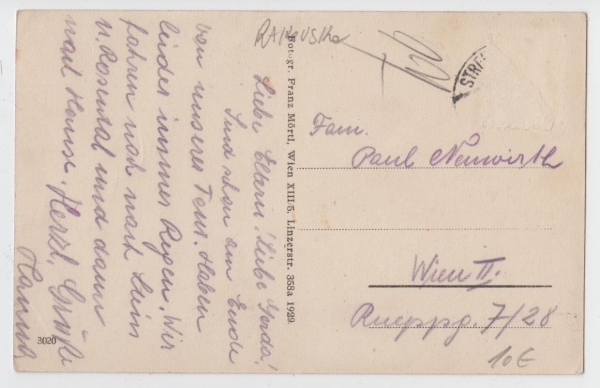 RAKOVSKA
Liebe Eltern! Liebe Gerda!
Sind schon am Ende
von unserer Tour. Haben
leider immer Regen. Wir
fahren noch nach
u. Rosental und dann
nach Hause. Herzl. Grüße
Hanna
3020
Photogr. Franz Mörtl, Wien XIII/5, Linzerstr. 358a 1929
STRA
Fam.
Paul Neuwirth
Wien II.
Rueppg. 7/28
10€